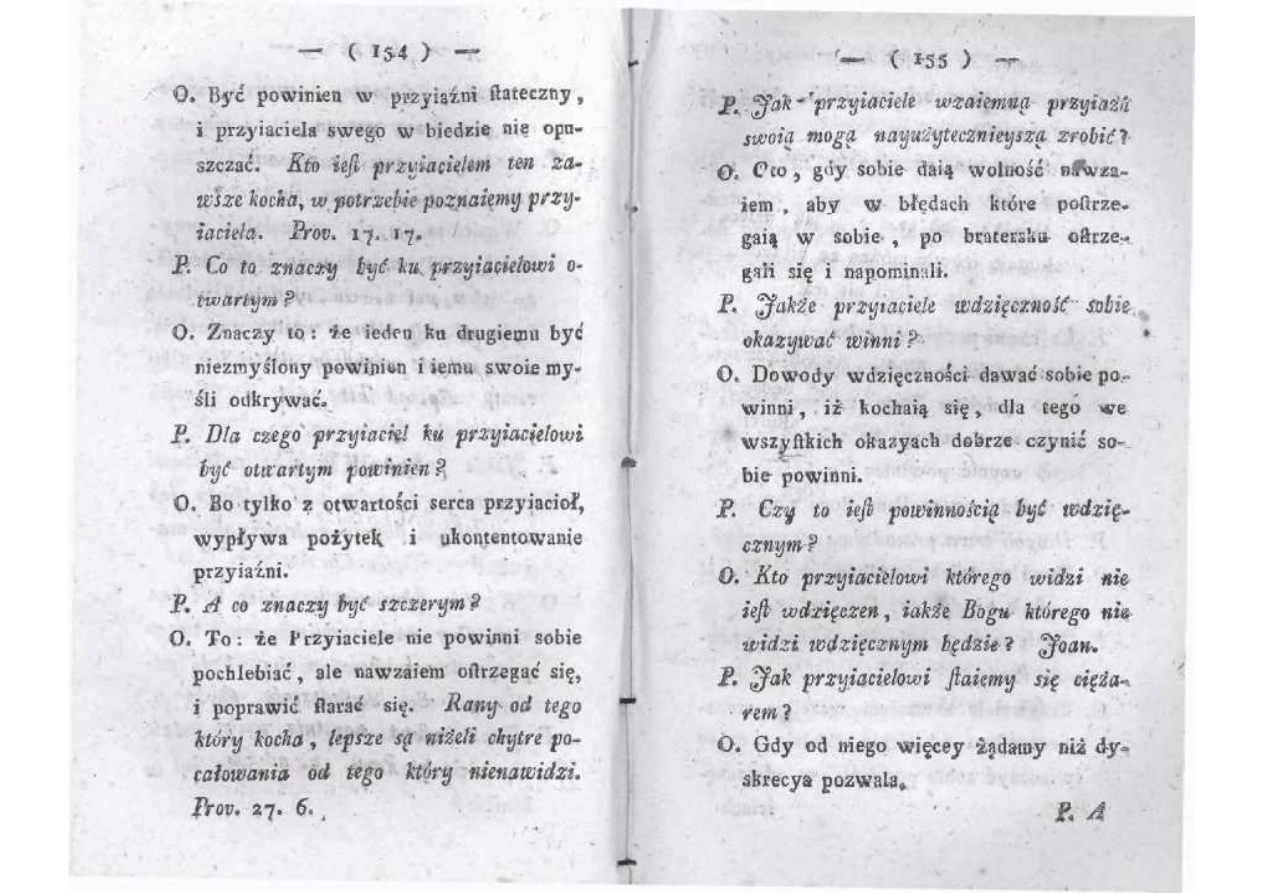 — ( 154 ) —
O. Być powinien w przyiaźni ſtateczny,
i przyiaciela swego w biedzie nie opu-
szczać. Kto ieſt przyiacielem ten za-
wsze kocha, w potrzebie poznaiemy przy-
iaciela. Prov. 17. 17.
P. Co to znaczy być ku przyiacielowi o-
twartym?
O. Znaczy to: że ieden ku drugiemu być
niezmyślony powinien i iemu swoie my-
śli odkrywać.
P. Dla czego przyiaciel ku przyiacielowi
być otwartym powinien?
O. Bo tylko z otwartości serca przyiacioł,
wypływa pożytek i ukontentowanie
przyiaźni.
P. A co znaczy być szczerym?
O. To: że Przyiaciele nie powinni sobie
pochlebiać, ale nawzaiem oſtrzegać się,
i poprawić ſtarać się. Rany od tego
który kocha, lepsze są niżeli chytre po-
całowania od tego który nienawidzi.
Prov. 27. 6.
— ( 155 ) —
P. Jak przyiaciele wzaiemną przyiaźń
swoią mogą nayużytecznieyszą zrobić?
O. Oto, gdy sobie daią wolność nawza-
iem, aby w błędach które poſtrze-
gaią w sobie, po bratersku oſtrze-
gali się i napominali.
P. Jakże przyiaciele wdzięczność sobie
okazywać winni?
O. Dowody wdzięczności dawać sobie po-
winni, iż kochaią się, dla tego we
wszyſtkich okazyach dobrze czynić so-
bie powinni.
P. Czy to ieſt powinnością być wdzię-
cznym?
O. Kto przyiacielowi którego widzi nie
ieſt wdzięczen, iakże Bogu którego nie
widzi wdzięcznym będzie? Joan.
P. Jak przyiacielowi ſtaiemy się cięża-
rem?
O. Gdy od niego więcey żądamy niż dy-
skrecya pozwala.
P. A